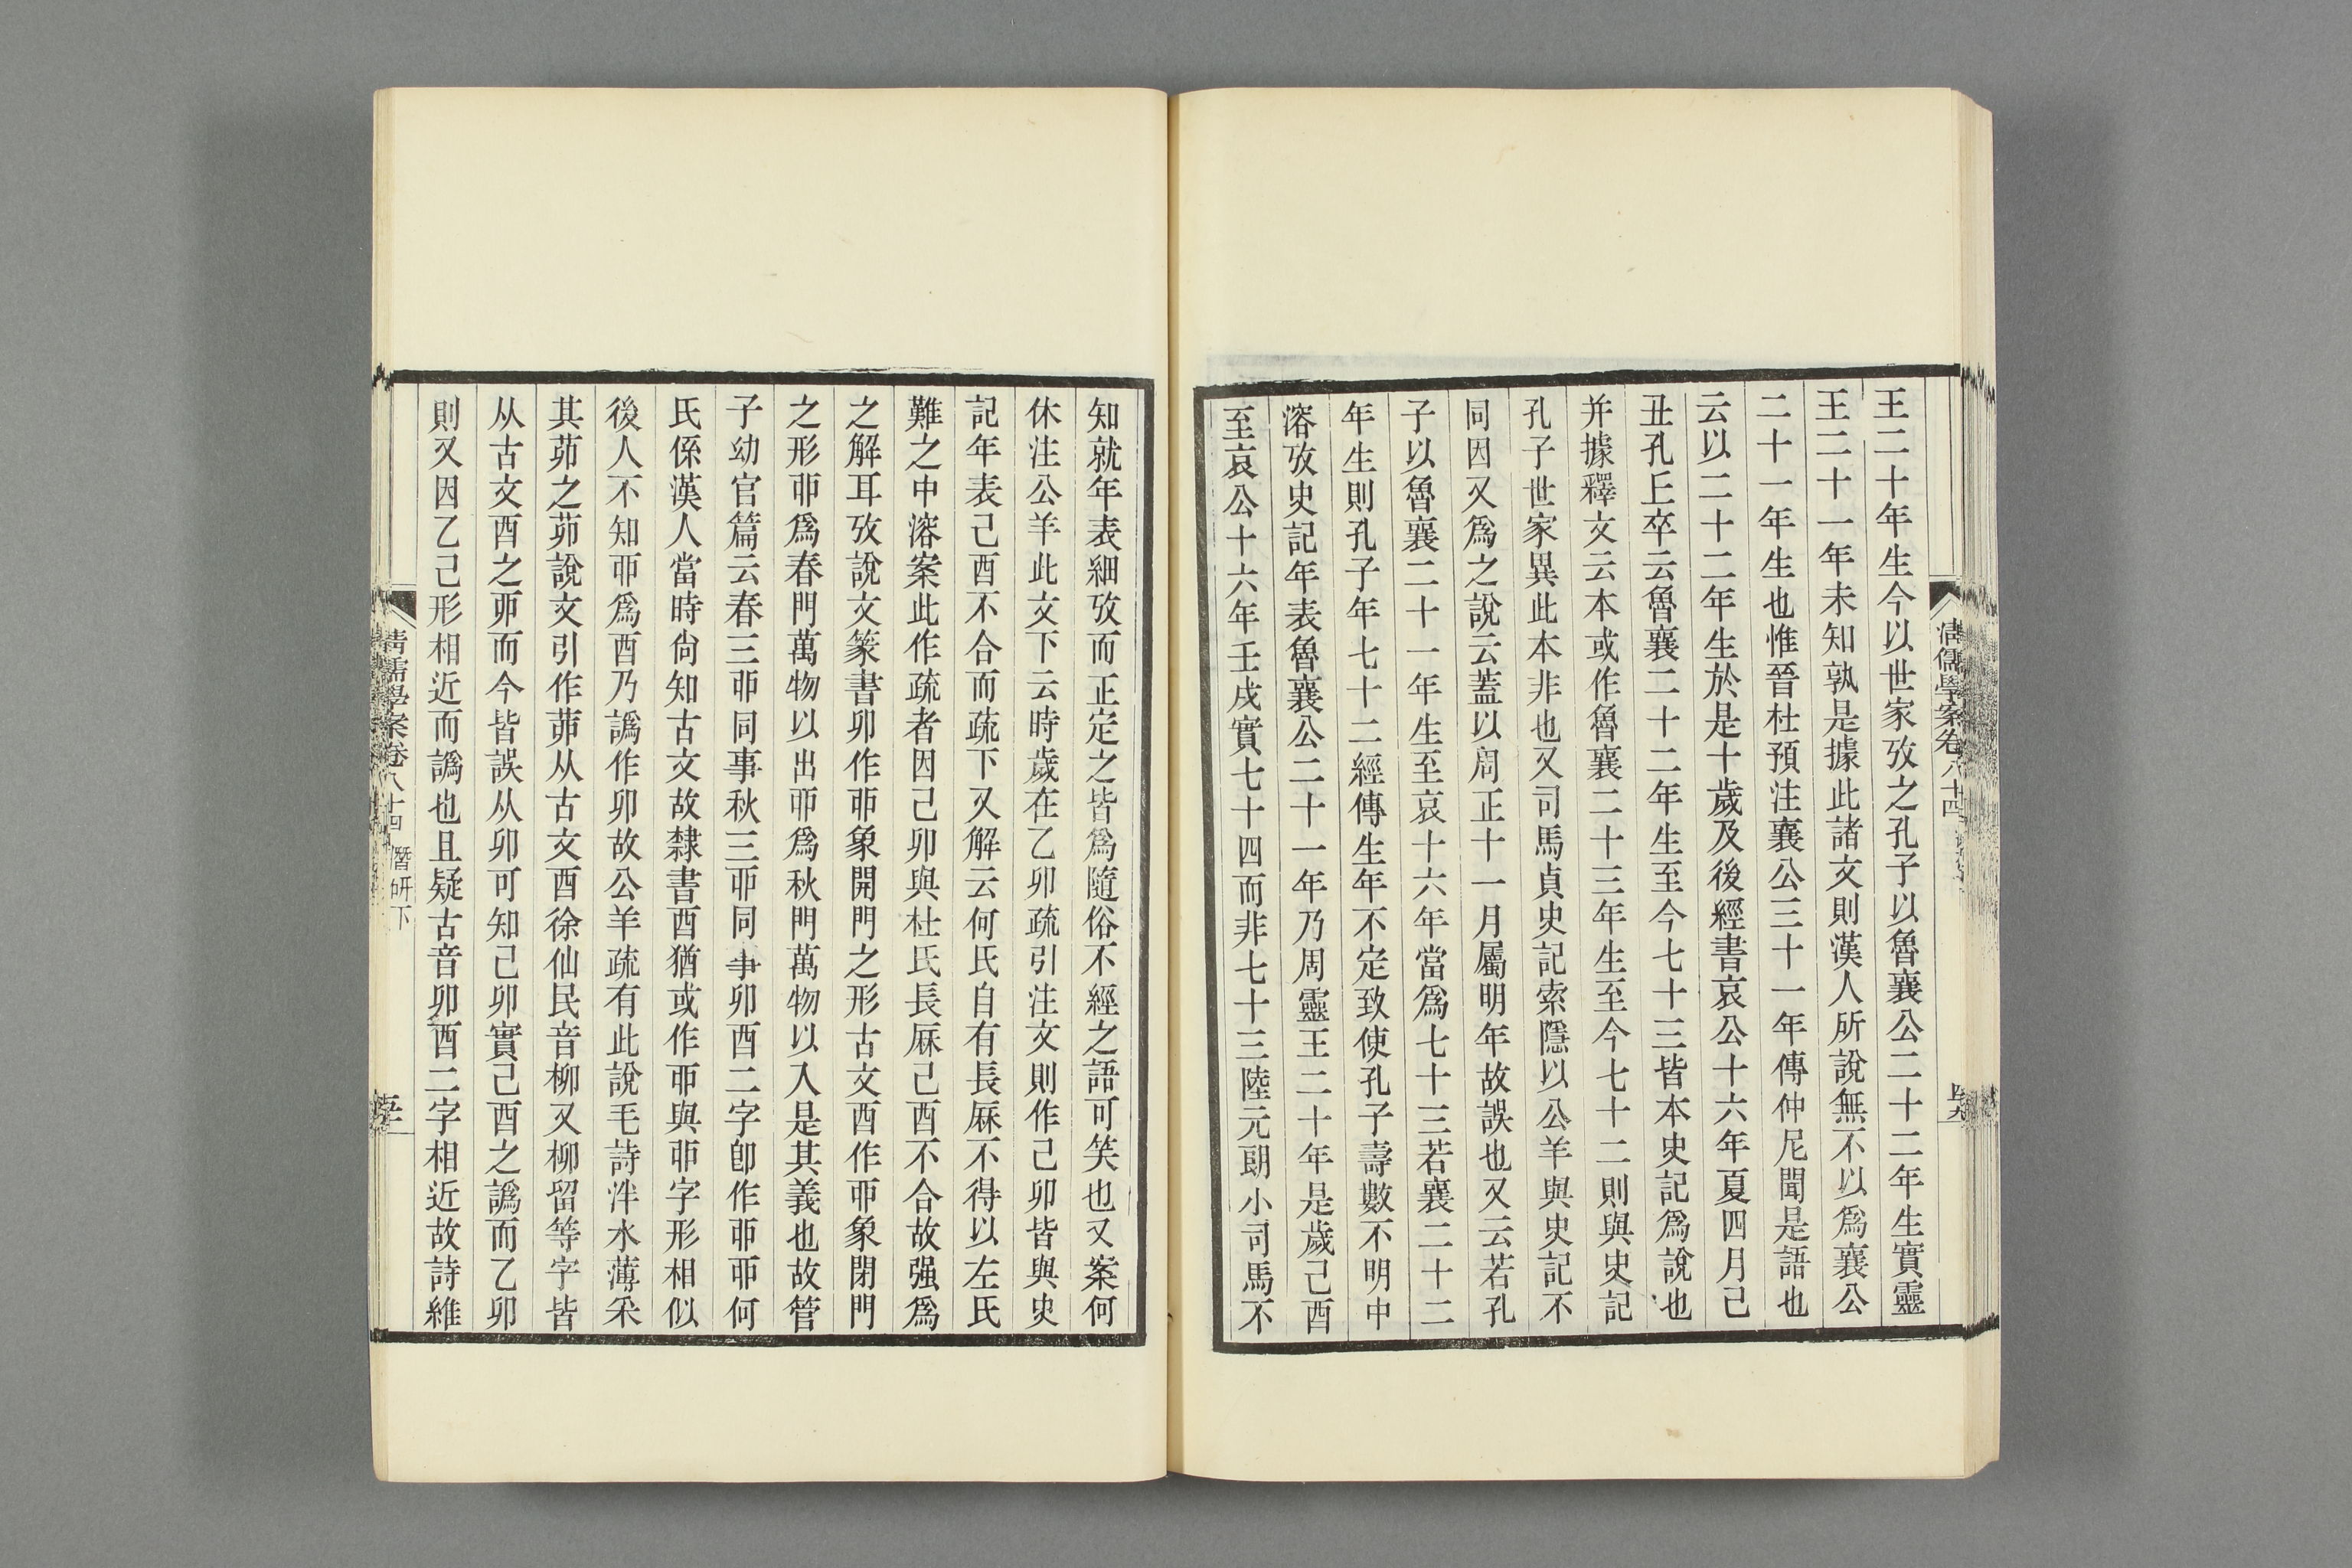 王二十年生今以世家攷之孔子以魯襄公二十二年生實靈
王二十一年未知孰是據此諸文則漢人所說無不以爲襄公
二十一年生也惟晉杜預注襄公三十一年傳仲尼聞是語也
云以二十二年生於是十歲及後經書哀公十六年夏四月己
丑孔丘卒云魯襄二十二年生至今七十三皆本史記爲說也
并據釋文云本或作魯襄二十三年生至今七十二則與史記
孔子世家異此本非也又司馬貞史記索隱以公羊與史記不
同因又爲之說云蓋以周正十一月屬明年故誤也又云若孔
子以魯襄二十一年生至哀十六年當爲七十三若襄二十二
年生則孔子年七十二經傳生年不定致使孔子壽數不明中
溶攷史記年表魯襄公二十一年乃周靈王二十年是歲己酉
至哀公十六年壬戌實七十四而非七十三陸元朗小司馬不
清儒學案卷八十四
知就年表細攷而正定之皆爲隨俗不經之語可笑也又案何
休注公羊此文下云時歲在乙卯疏引注文則作己卯皆與史
記年表己酉不合而疏下又解云何氏自有長厤不得以左氏
難之中溶案此作疏者因己卯與杜氏長厤己酉不合故强爲
之解耳攷說文篆書卯作戼象開門之形古文酉作丣象閉門
之形戼爲春門萬物以出丣爲秋門萬物以入是其義也故管
子幼官篇云春三戼同事秋三丣同事卯酉二字卽作戼丣何
氏係漢人當時尙知古文故隸書酉猶或作丣與戼字形相似
後人不知丣爲酉乃譌作卯故公羊疏有此說毛詩泮水薄采
其茆之茆說文引作茆从古文酉徐仙民音柳又柳留等字皆
从古文酉之丣而今皆誤从卯可知己卯實己酉之譌而乙卯
則又因乙己形相近而譌也且疑古音卯酉二字相近故詩維
清儒學案卷八十四 潛研下